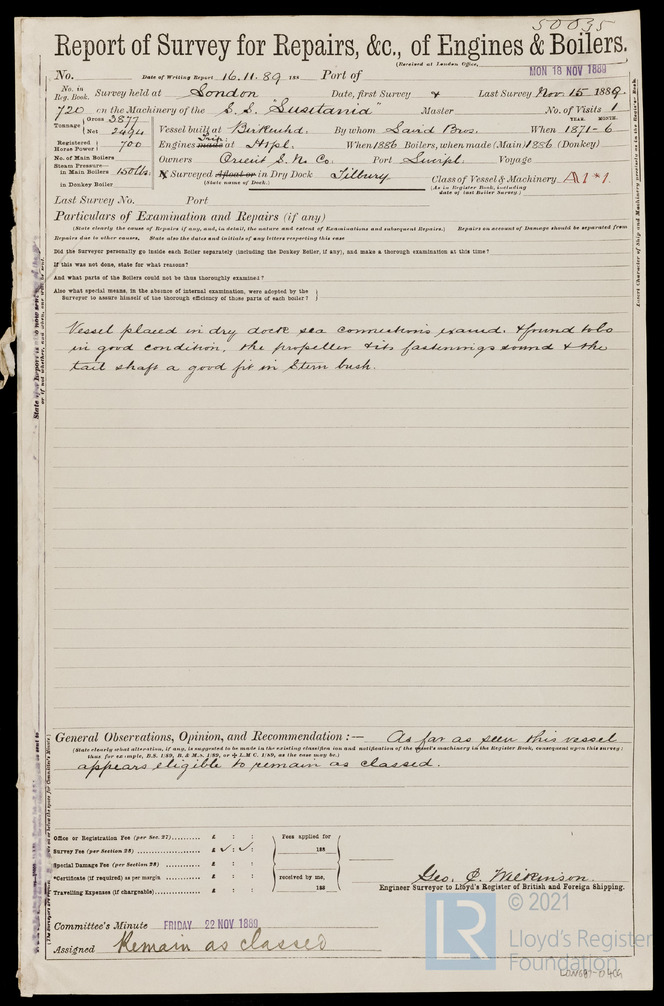 50035
Report of Survey for Repairs, &c., of Engines & Boilers.
(Received at London Office,
MON 18 NOV 1889
No. Date of Writing Report 16.11.89 188 Port of
No. in Reg. Book. Survey held at London Date, first Survey & Last Survey Nov 15 1889
720 on the Machinery of the S.S. "Lusitania" Master No. of Visits 1
Tonnage Gross 3877 Net 2494 Vessel built at Birkenhd. By whom Laird Bros. When YEAR. MONTH. 1871-6
Registered Horse Power 700 Engines made Trip at L'rpl. When 1886 Boilers, when made (Main) 1886 (Donkey)
No. of Main Boilers Owners Orient S. N. Co. Port Liverpl. Voyage
Steam Pressure— in Main Boilers 150 lbs. Surveyed Afloat or in Dry Dock Tilbury Class of Vessel & Machinery A1*1.
in Donkey Boiler (State name of Dock.) (As in Register Book, including date of last Boiler Survey.)
Last Survey No. Port
Particulars of Examination and Repairs (if any)
(State clearly the cause of Repairs if any, and, in detail, the nature and extent of Examinations and subsequent Repairs.) Repairs on account of Damage should be separated from
Repairs due to other causes, State also the dates and initials of any letters respecting this case
Did the Surveyor personally go inside each Boiler separately (including the Donkey Boiler, if any), and make a thorough examination at this time?
If this was not done, state for what reasons?
And what parts of the Boilers could not be thus thoroughly examined?
Also what special means, in the absence of internal examination, were adopted by the
Surveyor to assure himself of the thorough efficiency of those parts of each boiler?
Vessel placed in dry dock sea connections examd. & found to be
in good condition, the propeller & its fastenings sound & the
tail shaft a good fit in Stern bush.
General Observations, Opinion, and Recommendation :— As far as seen this vessel
(State clearly what alteration, if any, is suggested to be made in the existing classification and notification of the vessel's machinery in the Register Book, consequent upon this survey;
thus for example, B.S. 1/89, B. & M.S. 1/89, or L.M.C. 1/89, as the case may be.)
appears eligible to remain as classed.
Office or Registration Fee (per Sec. 27) £ : : Fees applied for
Survey Fee (per Section 28) £ : : 188
Special Damage Fee (per Section 28) £ : :
*Certificate (if required) as per margin £ : : received by me,
Travelling Expenses (if chargeable) £ : : 188
Geo. P. Wilkinson.
Engineer Surveyor to Lloyd's Register of British and Foreign Shipping.
Committee's Minute FRIDAY 22 NOV 1889
Assigned Remain as classed
LR
© 2021
Lloyd's Register
Foundation